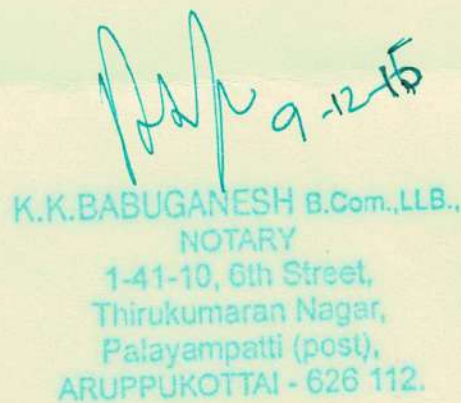 9-12-15
K.K.BABUGANESH B.Com.,LLB.,
NOTARY
1-41-10, 6th Street,
Thirukumaran Nagar,
Palayampatti (post),
ARUPPUKOTTAI - 626 112.